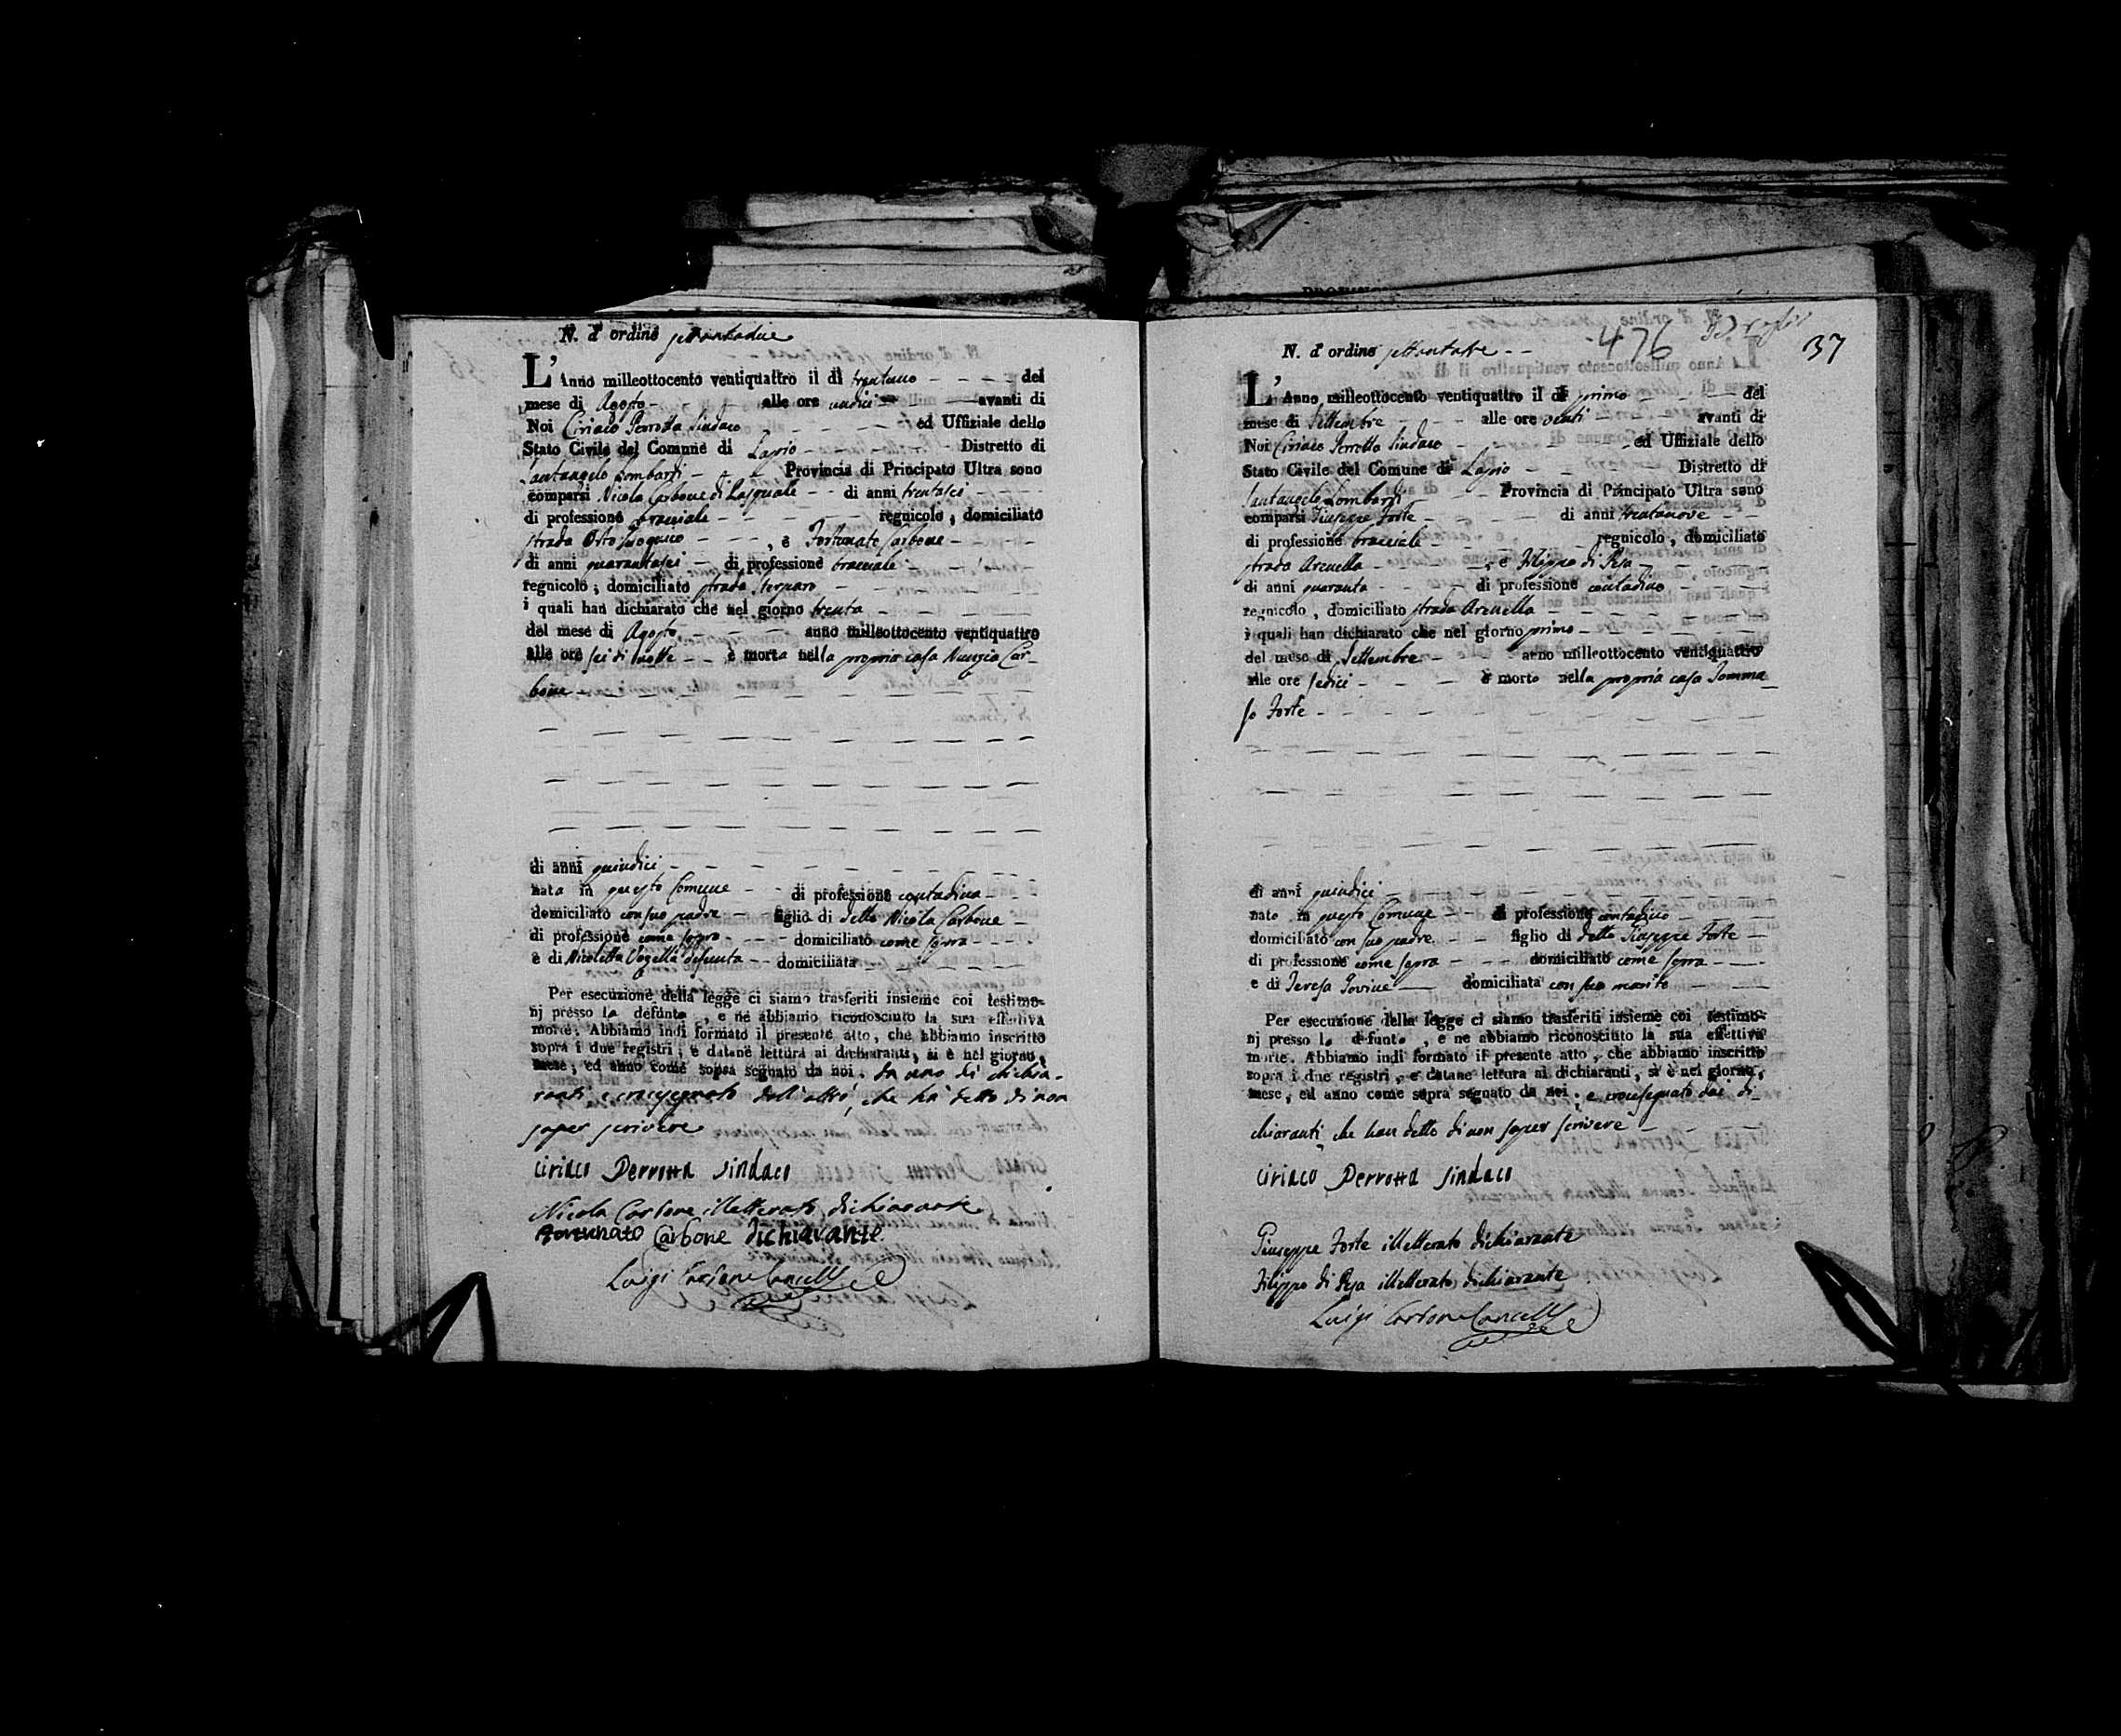 N. d' ordine settantadue
L' Anno milleottocento ventiquattro il dì trentuno del
mese di Agosto alle ore undici avanti di
Noi Ciriaco Perrotta Sindaco ed Uffiziale dello
Stato Civile del Comune di Lapio Distretto di
Santangelo Lombardi Provincia di Principato Ultra sono
comparsi Nicola Carbone di Pasquale di anni trentasei
di professione bracciale regnicolo, domiciliato
strada Orto , e Fortunato Carbone
di anni quarantasei di professione bracciale
regnicolo, domiciliato strada
i quali han dichiarato che nel giorno trenta
del mese di Agosto anno milleottocento ventiquattro
alle ore sei di notte è morta nella propria casa Nunzia Car-
bone
di anni quindici
nata in questo Comune di professione contadina
domiciliato con suo padre figlio di detto Nicola Carbone
di professione come sopra domiciliato come sopra
e di Nicoletta defunta domiciliata
Per esecuzione della legge ci siamo trasferiti insieme coi testimo-
nj presso la defunta, e ne abbiamo riconosciuto la sua effettiva
morte. Abbiamo indi formato il presente atto, che abbiamo inscritto
sopra i due registri, e datane lettura ai dichiaranti, si è nel giorno,
mese, ed anno come sopra segnato da noi. da uno di dichia-
ranti e crocesegnato dall'altro, che ha detto di non
saper scrivere
Ciriaco Perrotta Sindaco
Nicola Carbone illetterato dichiarante
Fortunato Carbone dichiarante
Luigi Carbone Cancell
476
37
N. d' ordine settantatre
L' Anno milleottocento ventiquattro il dì primo del
mese di Settembre alle ore venti avanti di
Noi Ciriaco Perrotta Sindaco ed Uffiziale dello
Stato Civile del Comune di Lapio Distretto di
Santangelo Lombardi Provincia di Principato Ultra sono
comparsi Giuseppe Forte di anni trentanove
di professione bracciale regnicolo, domiciliato
strada Arenella , e Filippo di Pesa
di anni quaranta di professione contadino
regnicolo, domiciliato strada Arenella
i quali han dichiarato che nel giorno primo
del mese di Settembre anno milleottocento ventiquattro
alle ore sedici è morto nella propria casa Tomma_
so Forte
di anni quindici
nato in questo Comune di professione contadino
domiciliato con suo padre figlio di detto Giuseppe Forte
di professione come sopra domiciliato come sopra
e di Teresa Iovine domiciliata con suo marito
Per esecuzione della legge ci siamo trasferiti insieme coi testimo-
nj presso lo defunto, e ne abbiamo riconosciuto la sua effettiva
morte. Abbiamo indi formato il presente atto, che abbiamo inscritto
sopra i due registri, e datane lettura ai dichiaranti, si è nel giorno,
mese, ed anno come sopra segnato da noi; e crocesegnato dai di_
chiaranti che han detto di non saper scrivere
Ciriaco Perrotta Sindaco
Giuseppe Forte illetterato dichiarante
Filippo di Pesa illetterato dichiarante
Luigi Carbone Cancell